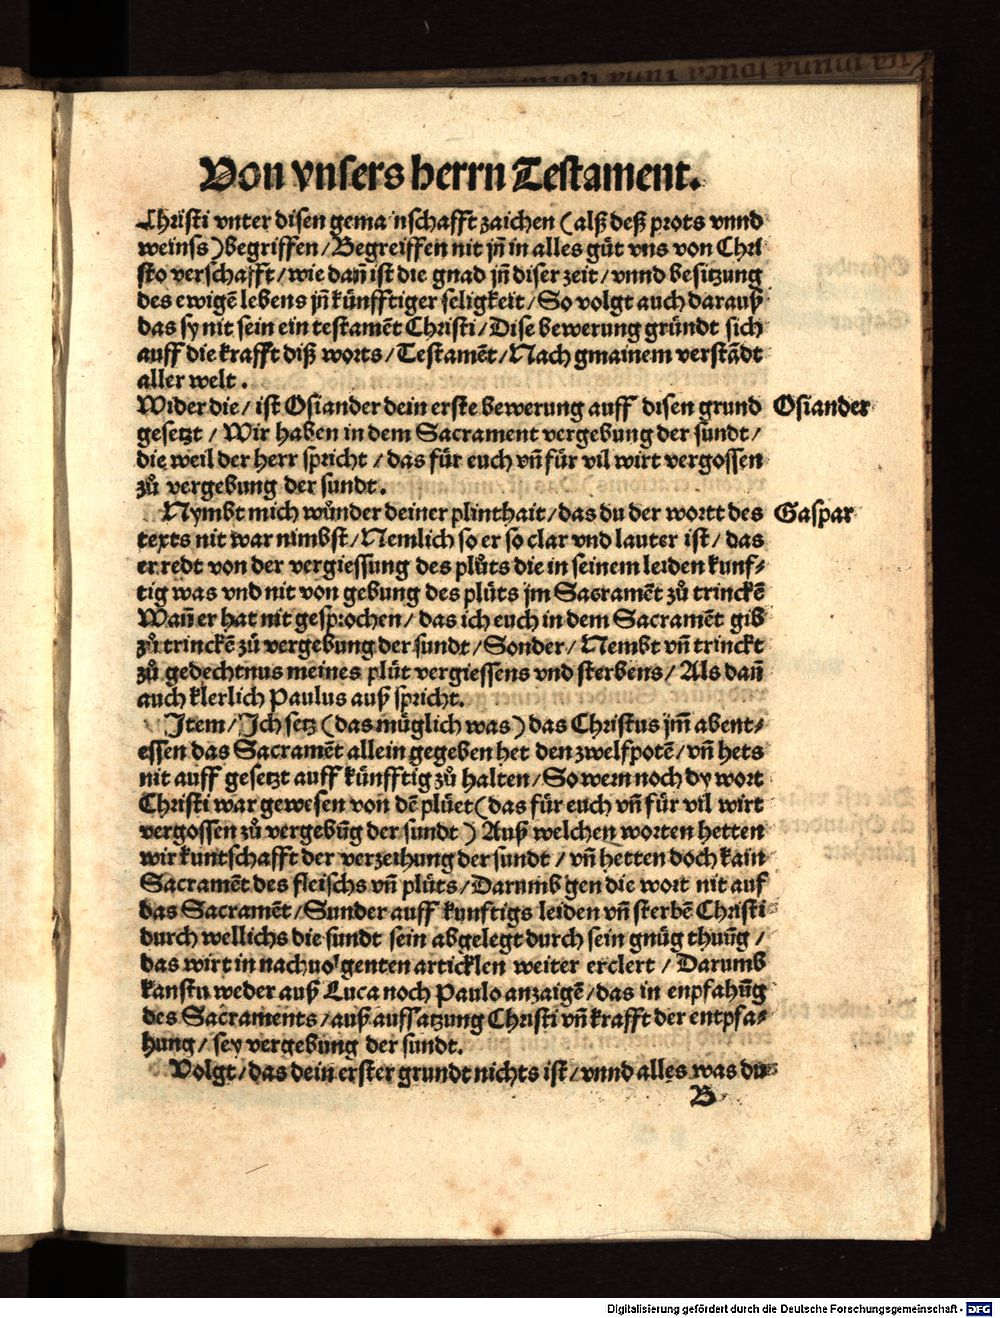 Von vnsers herrn Testament.
Christi vnter disen gema nschafft zaichen (alß deß prots vnnd
weinss) begriffen / Begreiffen nit jñ in alles gůt vns von Chri
sto verschafft / wie dañ ist die gnad jñ diser zeit / vnnd besitzung
des ewigē lebens jñ künfftiger seligkeit / So volgt auch darauß
das sy nit sein ein testamēt Christi / Dise bewerung gründt sich
auff die krafft diß worts / Testamēt / Nach gmainem verstādt
aller welt .
Wider die / ist Osiander dein erste bewerung auff disen grund
Osiander
gesetzt / Wir haben in dem Sacrament vergebung der sundt /
die weil der herr spricht / das für euch vñ für vil wirt vergossen
zů vergebung der sundt .
Nymbt mich wůnder deiner plinthait / das du der wortt des
Gaspar
texts nit war nimbst / Nemlich so er so clar vnd lauter ist / das
er redt von der vergiessung des plůts die in seinem leiden kunf⸗
tig was vnd nit von gebung des plůts jm Sacramēt zů trinckē
Wañ er hat nit gesprochen / das ich euch in dem Sacramēt gib
zů trinckē zů vergebung der sundt / Sonder / Nembt vñ trinckt
zů gedechtnus meines plůt vergiessens vnd sterbens / Als dañ
auch klerlich Paulus auß spricht.
Item / Ich setz (das müglich was) das Christus jm̄ abent⸗
essen das Sacramēt allein gegeben het den zwelfpotē / vñ hets
nit auff gesetzt auff künfftig zů halten / So wern noch dy wort
Christi war gewesen von dē plůet (das für euch vñ für vil wirt
vergossen zů vergebūg der sundt ) Auß welchen worten hetten
wir kuntschafft der verzeihung der sundt / vñ hetten doch kain
Sacramēt des fleischs vñ plůts / Darumb gen die wort nit auf
das Sacramēt / Sunder auff kunftigs leiden vñ sterbē Christi
durch wellichs die sundt sein abgelegt durch sein gnůg thuūg /
das wirt in nachuolgenten articklen weiter erclert / Darumb
kanstu weder auß Luca noch Paulo anzaigē / das in enpfahūg
des Sacraments / auß auffsatzung Christi vñ krafft der entpfa⸗
hung / sey vergebung der sundt.
Volgt / das dein erster grundt nichts ist / vnnd alles was du
B
Digitalisierung gefördert durch die Deutsche Forschungsgemeinschaft - DFG